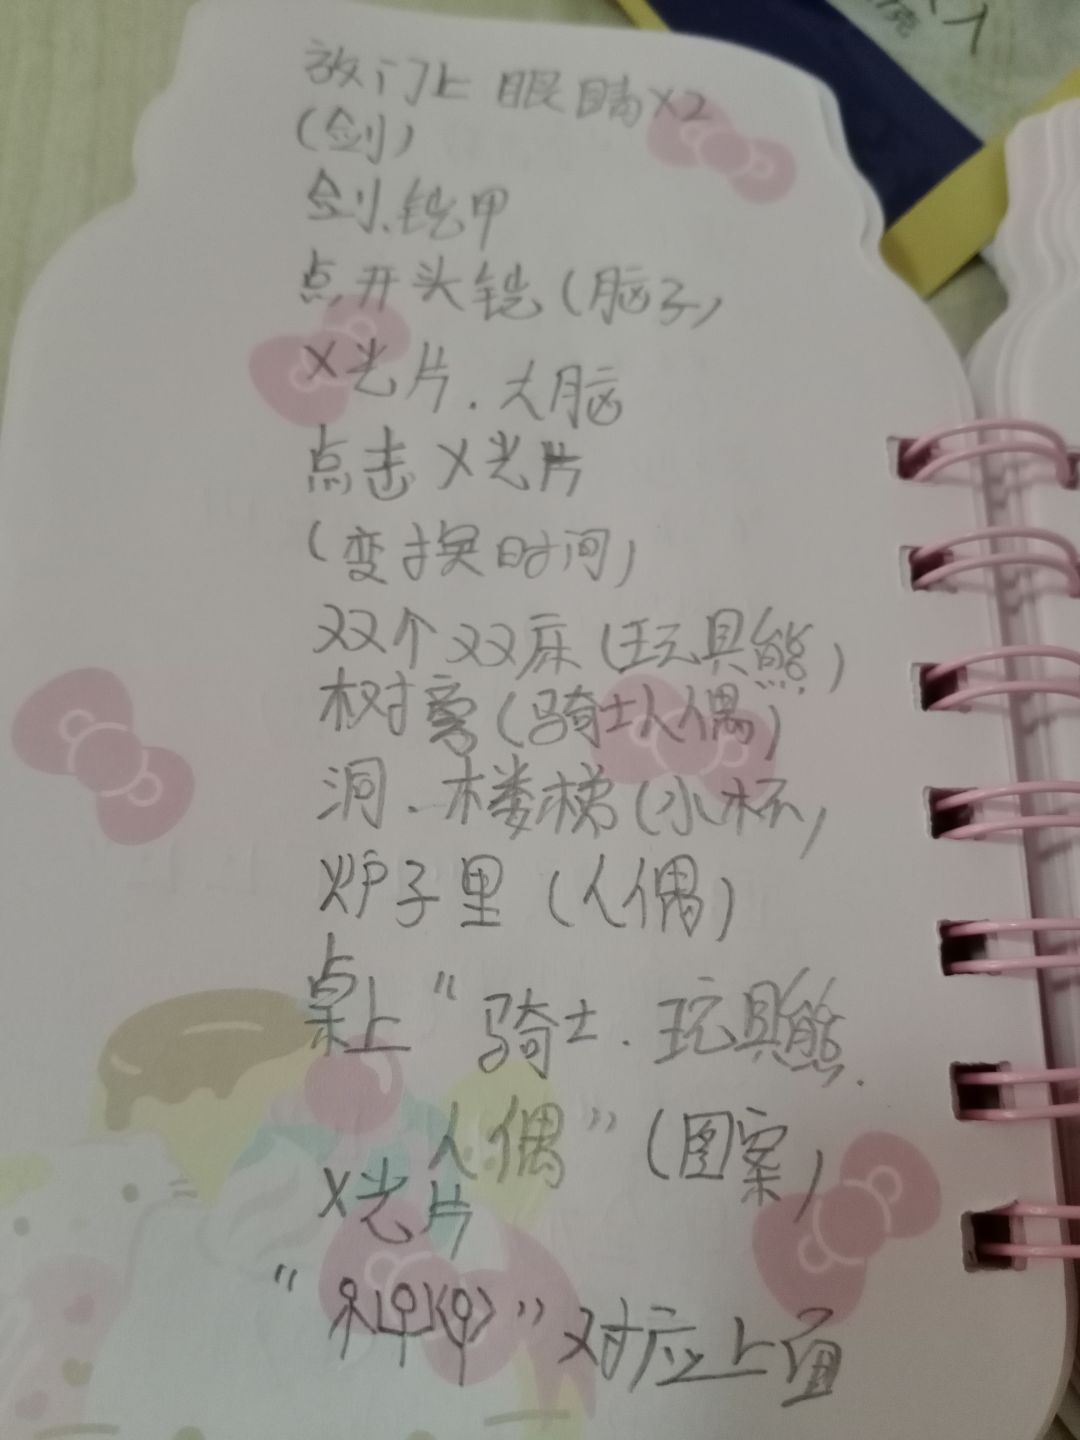 克
放门上 眼睛x2
(剑)
剑、铠甲
点开头铠(脑子)
X光片.大脑
点击X光片
(变换时间)
双个双床(玩具熊)
树旁(骑士人偶)
洞、楼梯(水杯)
炉子里(人偶)
桌上"骑士.玩具熊.
人偶"(图案)
X光片
" "对应上面